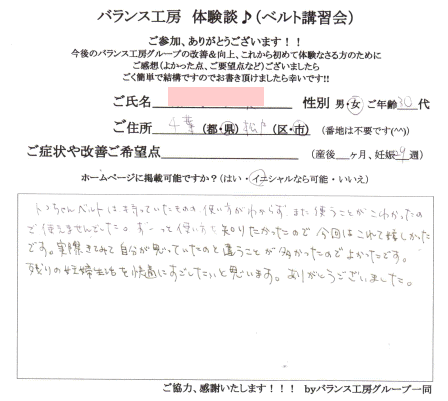 バランス工房 体験談♪(ベルト講習会)
ご参加、ありがとうございます！！
今後のバランス工房グループの改善&向上、これから初めて体験なさる方のために
ご感想(よかった点、ご要望点など)ございましたら
ごく簡単で結構ですのでお書き頂けましたら幸いです!!
ご氏名 性別 男・女 ご年齢30代
ご住所 千葉(都・県)松戸(区・市) (番地は不要です(^^))
ご症状や改善ご希望点 (産後 ヶ月、妊娠29週)
ホームページに掲載可能ですか?(はい・イニシャルなら可能・いいえ)
トコちゃんベルトは持っていたものの、使い方がわからず、また使うことがこわかったの
で使えませんでした。ずーっと使い方を知りたかったので今回はこれて嬉しかった
です。実際きてみて自分が思っていたのと違うことが多かったのでよかったです。
残りの妊婦生活を快適にすごしたいと思います。ありがとうございました。
ご協力、感謝いたします！！！ byバランス工房グループ一同